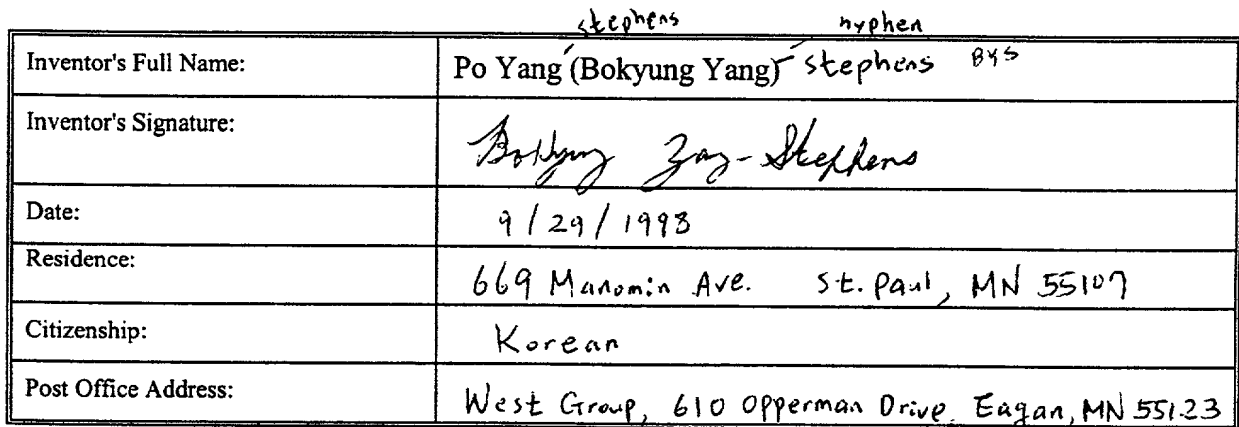 stephens hyphen
Inventor's Full Name: Po Yang (Bokyung Yang)-stephens BYS
Inventor's Signature: Bokyung Yang-Stephens
Date: 9/29/1998
Residence: 669 Manomin Ave. St. Paul, MN 55107
Citizenship: Korean
Post Office Address: West Group, 610 Opperman Drive, Eagan, MN 55123